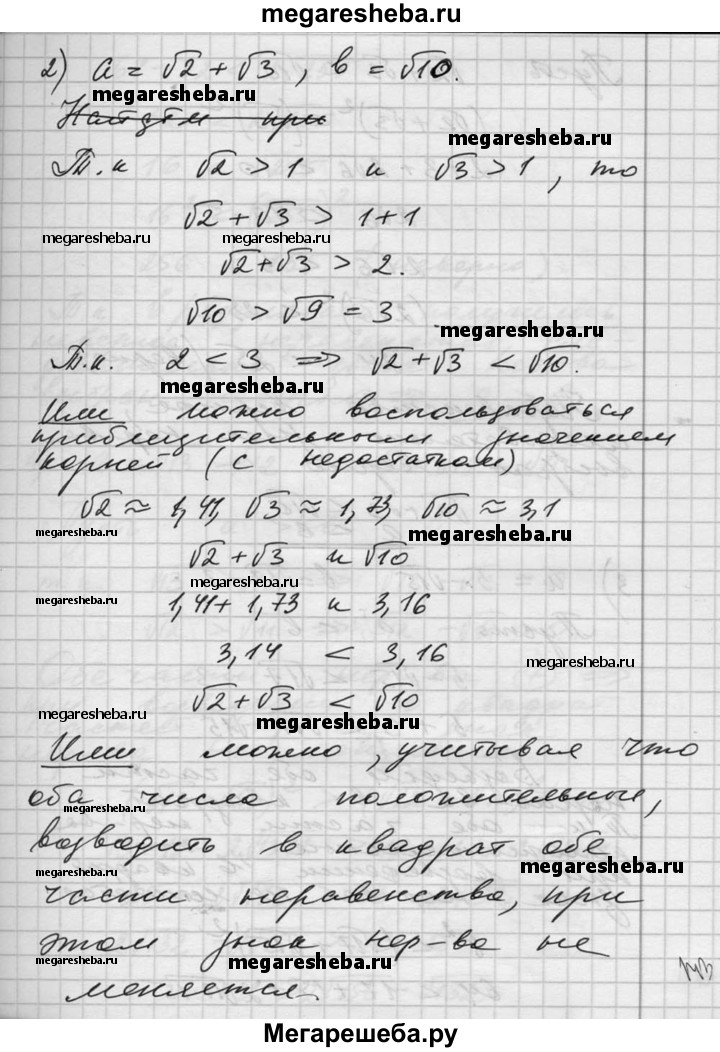 megaresheba.ru
2) a = √2 + √3 , b = √10.
megaresheba.ru
Найдём при
megaresheba.ru
Т.к √2 > 1 и √3 > 1, то
√2 + √3 > 1+1
megaresheba.ru megaresheba.ru
√2+√3 > 2.
√10 > √9 = 3
megaresheba.ru
Т.к. 2 < 3 => √2+√3 < √10.
megaresheba.ru
Или можно воспользоваться
приблизительным значением
корней (с недостатком)
√2 ≈ 1,41, √3 ≈ 1,73, √10 ≈ 3,1
megaresheba.ru megaresheba.ru
√2+√3 и √10
megaresheba.ru
megaresheba.ru
1,41+1,73 и 3,16
3,14 < 3,16
megaresheba.ru
√2+√3 < √10
megaresheba.ru
megaresheba.ru
Или можно, учитывая что
оба числа положительные,
megaresheba.ru
возводить в квадрат обе
megaresheba.ru
megaresheba.ru
части неравенства, при
этом знак нер-ва не
megaresheba.ru
megaresheba.ru
меняется.
Мегарешеба.ру